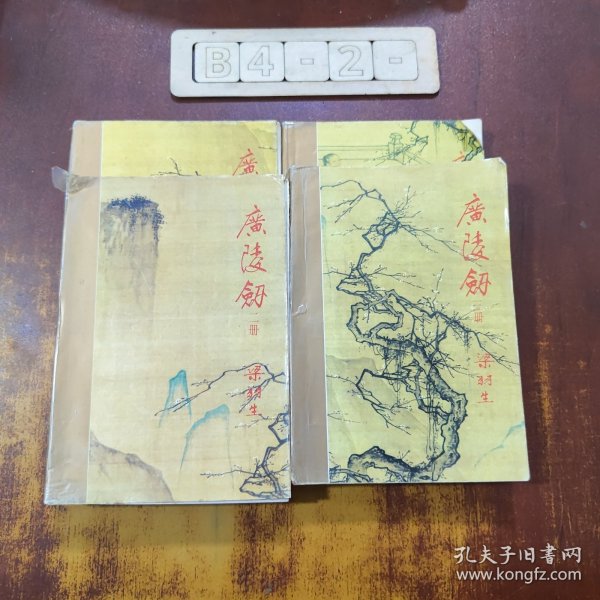 B4-2-
廣
廣陵劍
二册
梁羽生
廣陵劍
册
梁羽生
孔夫子旧書网
www.kongfz.com